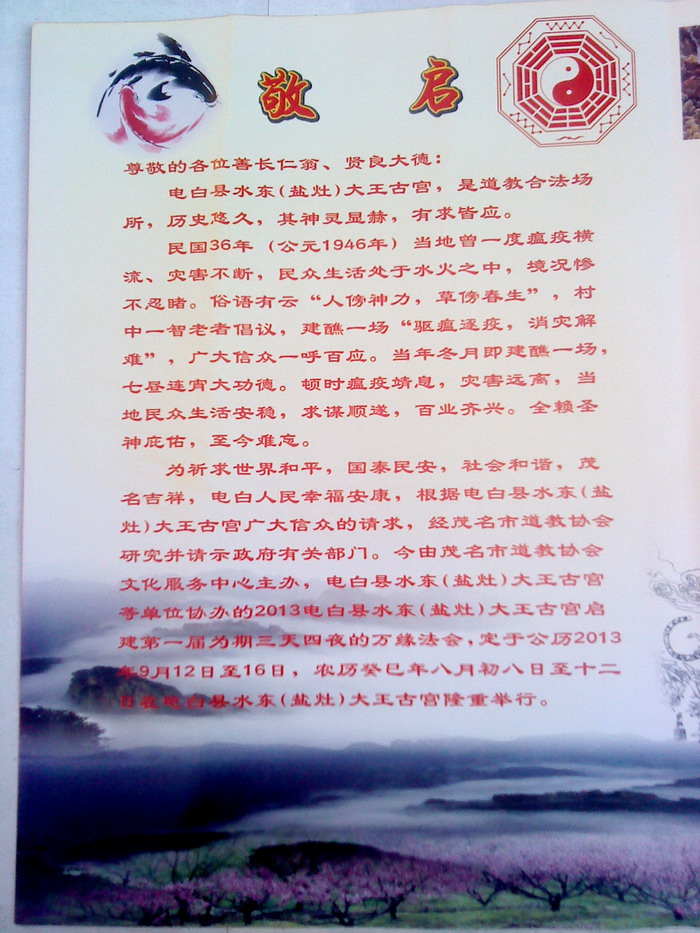 敬 启
尊敬的各位善长仁翁、贤良大德：
电白县水东(盐灶)大王古宫，是道教合法场
所，历史悠久，其神灵显赫，有求皆应。
民国36年（公元1946年）当地曾一度瘟疫横
流、灾害不断，民众生活处于水火之中，境况惨
不忍睹。俗语有云“人傍神力，草傍春生”，村
中一智老者倡议，建醮一场“驱瘟逐疫，消灾解
难”，广大信众一呼百应。当年冬月即建醮一场，
七昼连宵大功德。顿时瘟疫靖息，灾害远离，当
地民众生活安稳，求谋顺遂，百业齐兴。全赖圣
神庇佑，至今难忘。
为祈求世界和平，国泰民安，社会和谐，茂
名吉祥，电白人民幸福安康，根据电白县水东(盐
灶)大王古宫广大信众的请求，经茂名市道教协会
研究并请示政府有关部门。今由茂名市道教协会
文化服务中心主办，电白县水东(盐灶)大王古宫
等单位协办的2013电白县水东(盐灶)大王古宫启
建第一届为期三天四夜的万缘法会，定于公历2013
年9月12日至16日，农历癸巳年八月初八日至十二
日在电白县水东(盐灶)大王古宫隆重举行。